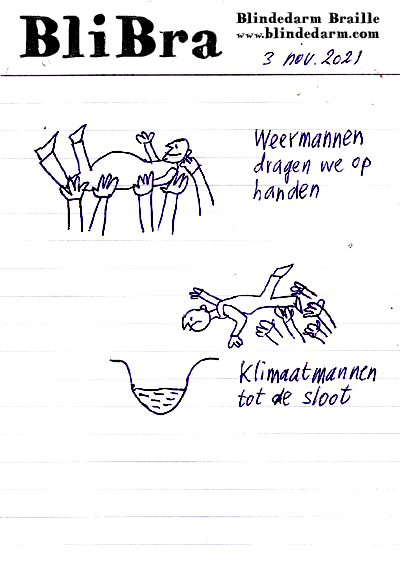 BliBra
Blindedarm Braille
www.blindedarm.com
3 nov. 2021
Weermannen
dragen we op
handen
Klimaatmannen
tot de sloot